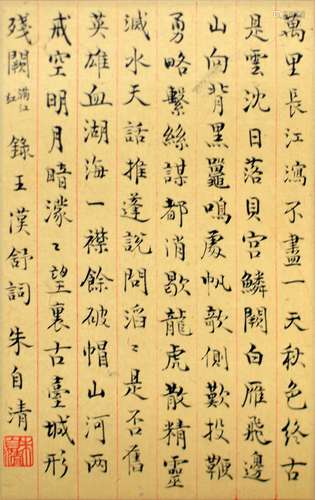 萬里長江瀉不盡一天秋色終古
是雲沈日落貝宮鱗闕白雁飛邊
山向背黑鼉鳴處帆欹側歎投鞭
勇略繫絲謀都消歇龍虎散精靈
滅水天話推蓬說問滔〻是否舊
英雄血湖海一襟餘破帽山河兩
戒空明月暗濛〻望裏古臺城形
殘闕滿江紅 錄王漢舒詞 朱自清